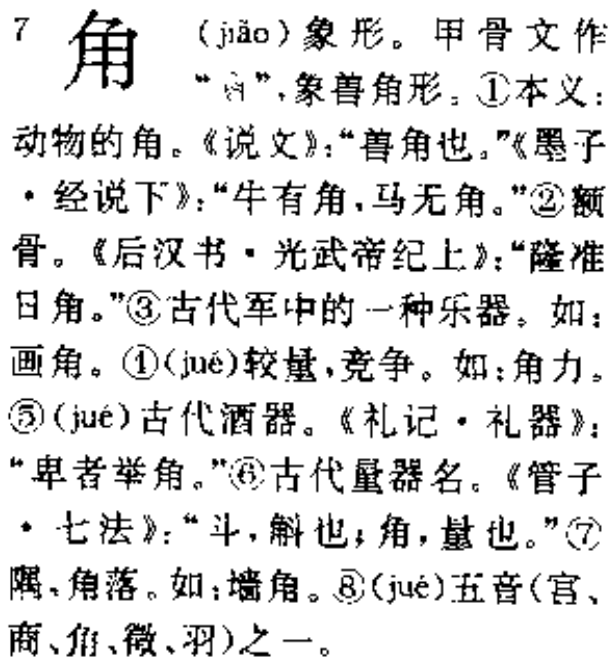 7 角 (jiǎo)象形。甲骨文作
“”,象兽角形。①本义:
动物的角。《说文》:“兽角也。”《墨子
·经说下》:“牛有角,马无角。”②额
骨。《后汉书·光武帝纪上》:“隆准
日角。”③古代军中的一种乐器。如:
画角。④(jué)较量,竞争。如:角力。
⑤(jué)古代酒器。《礼记·礼器》:
“卑者举角。”⑥古代量器名。《管子
·七法》:“斗,斛也;角,量也。”⑦
隅、角落。如:墙角。⑧(jué)五音(宫、
商、角、徵、羽)之一。